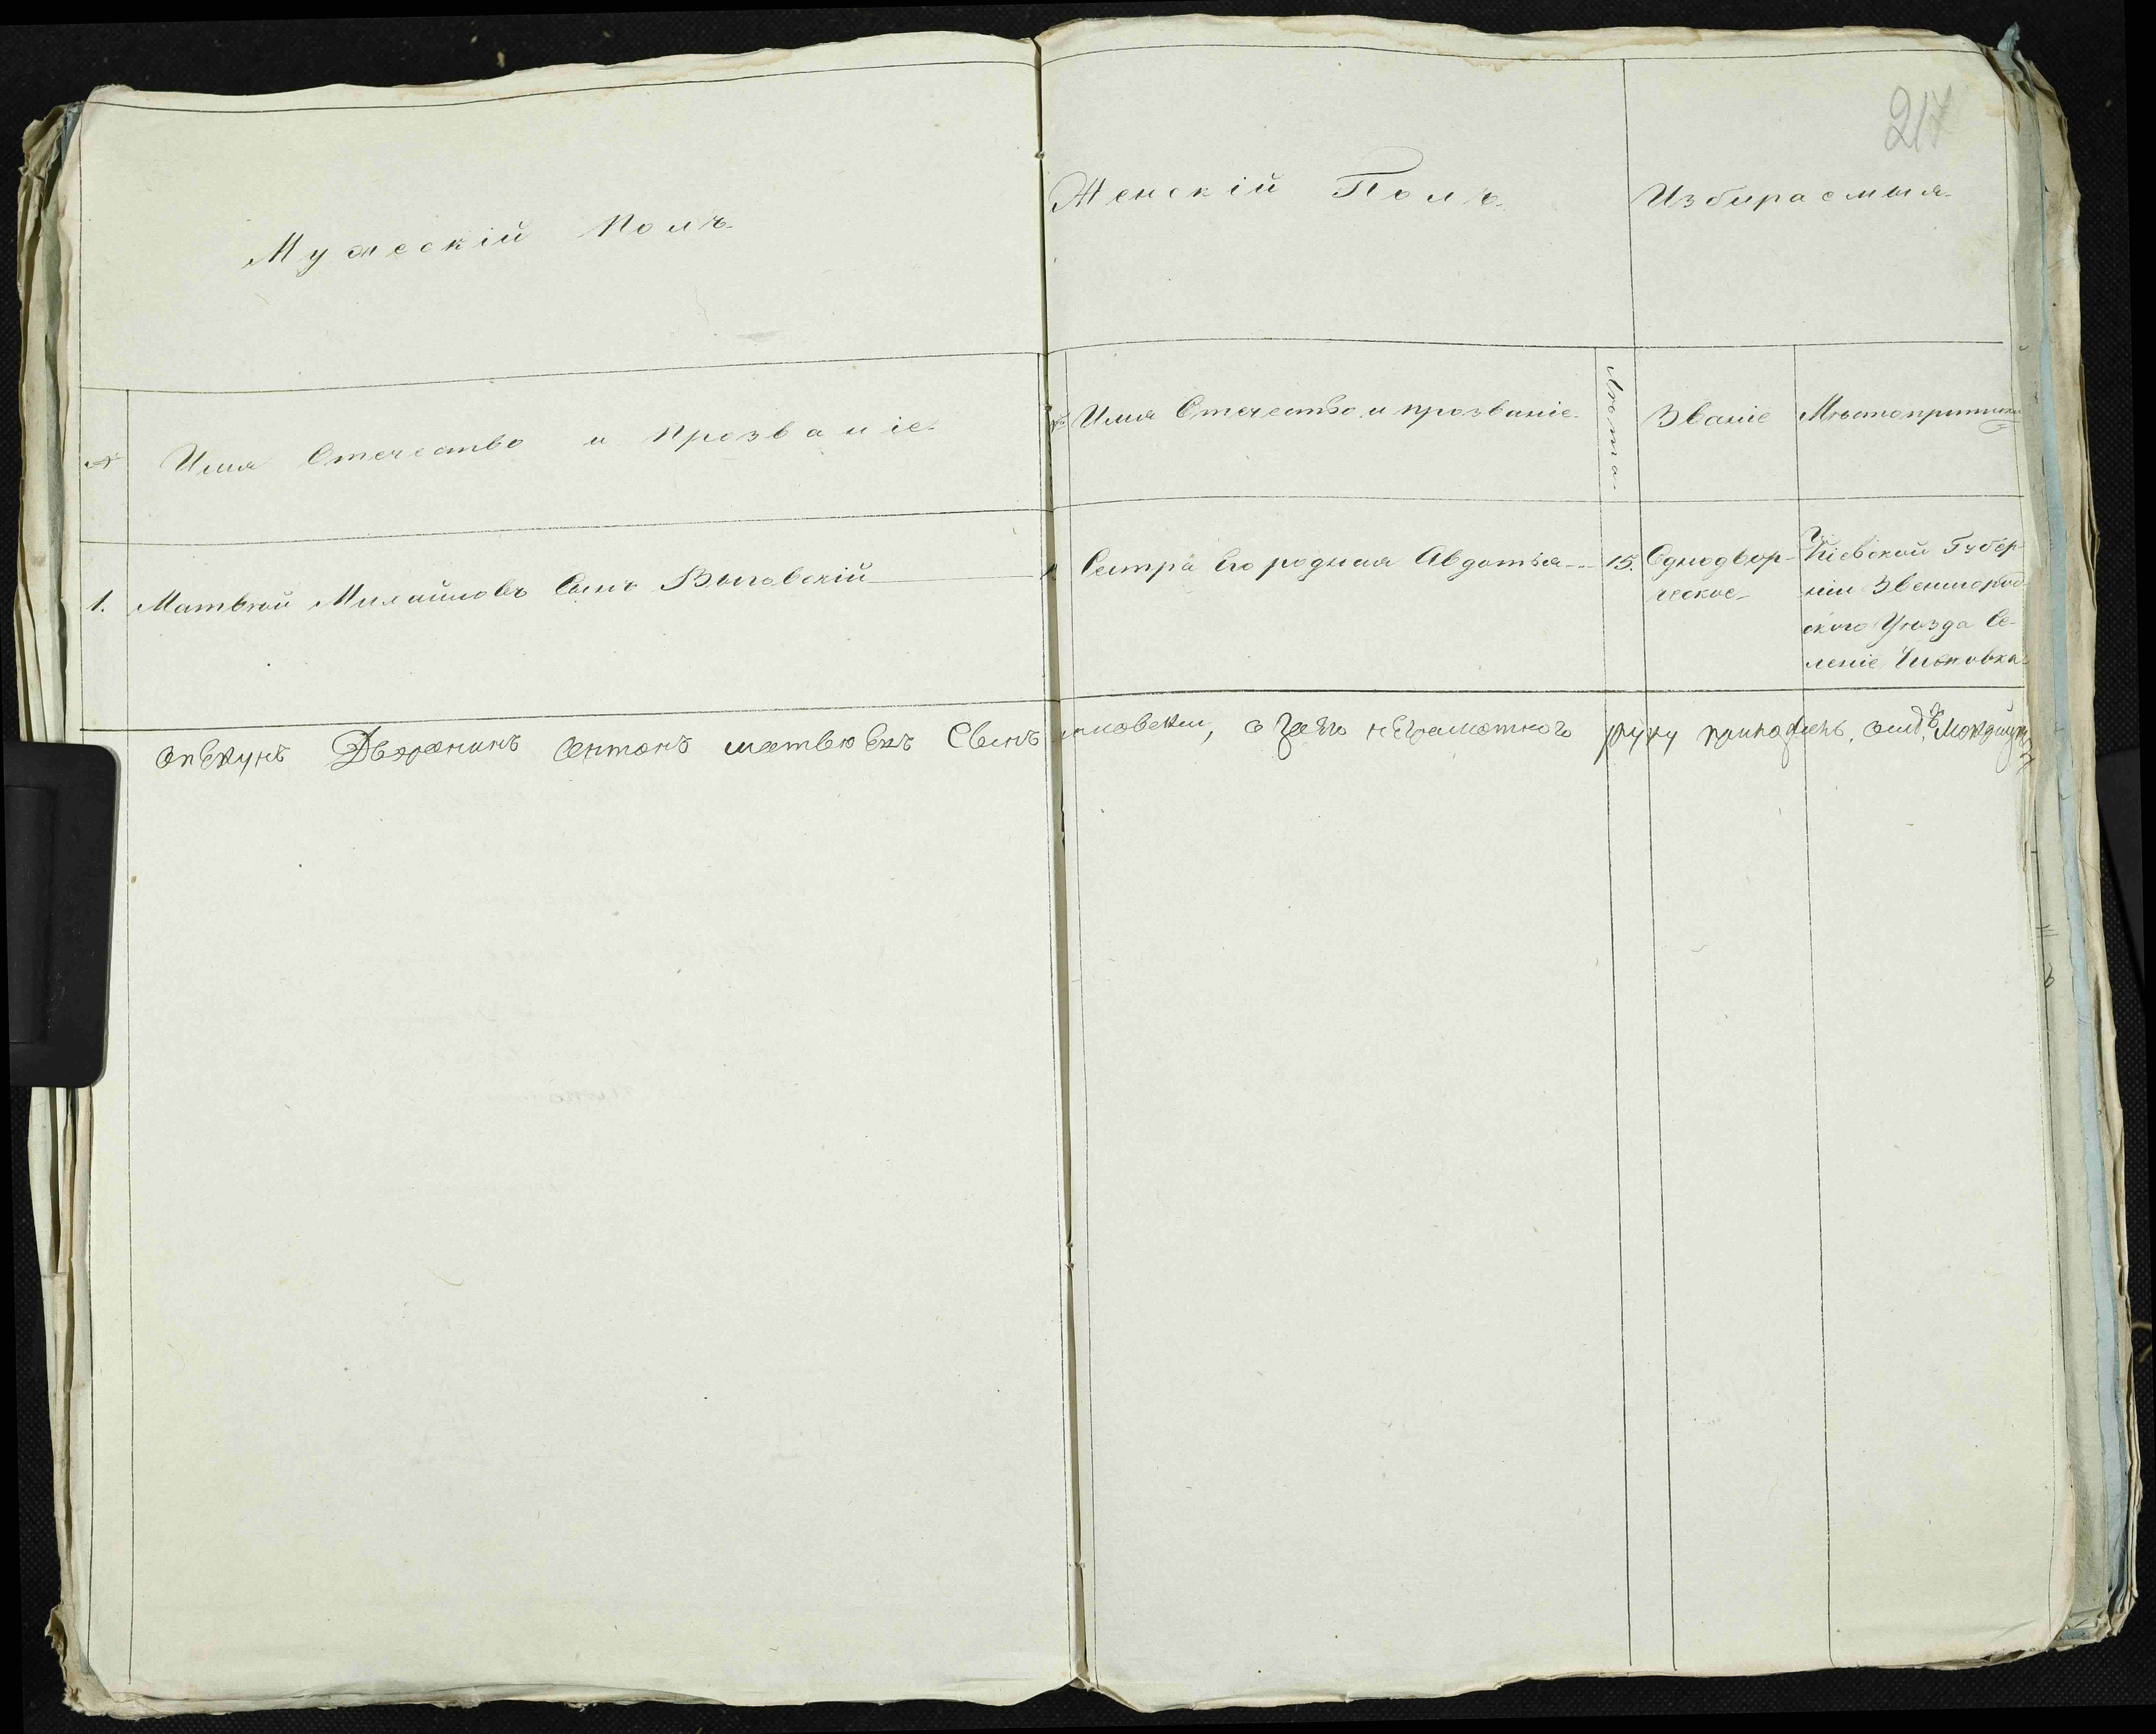 217
Мужескій Полъ
Женскій Полъ
Избираемыя
№ Имя Отечество и Прозваніе
№ Имя Отечество и прозваніе
Лѣта
Званіе
Мѣстоприписки
1. Матвѣй Михайловъ Сынъ Выговскій
1 Сестра Его родная Авдотья 15.
Однодвор-
ческое
Кіевской Губер-
ніи Звенигород
скаго Уѣзда Се-
леніе
опЕкунъ Дворянинъ антонъ сынъ, а за Его нЕграмотного руку приложилъ